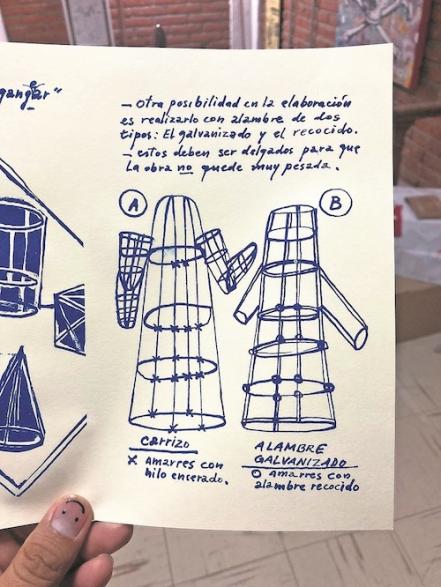 gangar"
— Otra posibilidad en la elaboración
es realizarlo con alambre de dos
tipos: El galvanizado y el recocido.
— estos deben ser delgados para que
la obra no quede muy pesada.
A
B
carrizo
x Amarres con
hilo encerado.
ALAMBRE
GALVANIZADO
O amarres con
alambre recocido